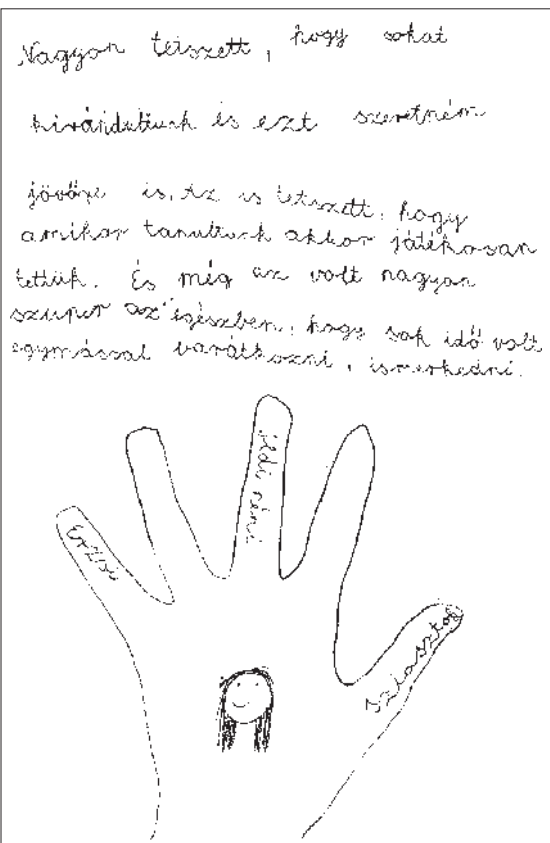 Nagyon tetszett, hogy sokat
kirándultunk és ezt szeretném
jövőre is. Az is tetszett, hogy
amikor tanultunk akkor játékosan
tettük. És még az volt nagyon
szuper az egészben, hogy sok idő volt
egymással barátkozni, ismerkedni.
néni
Sziasztok